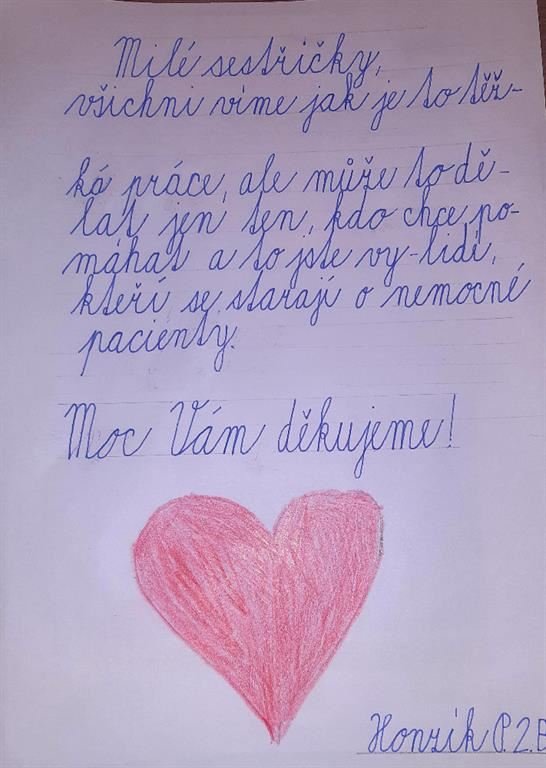 Milé sestřičky,
všichni víme jak je to těž-
ká práce, ale může to dě-
lat jen ten, kdo chce po-
máhat a to jste vy-lidi,
kteří se starají o nemocné
pacienty.
Moc Vám děkujeme!
Honzík P. 2.B